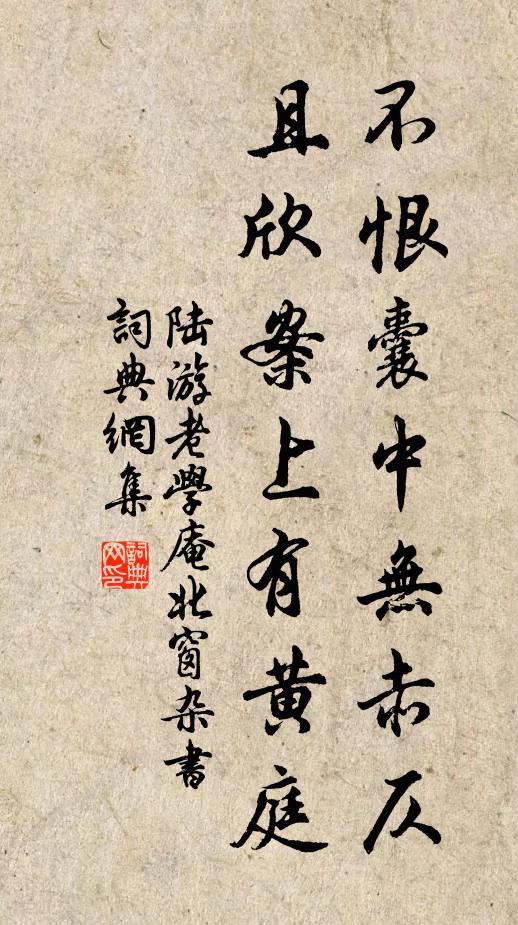 不恨囊中無赤仄
且欣案上有黄庭
陆游老學庵北窗杂書
詞典網集
詞典網印